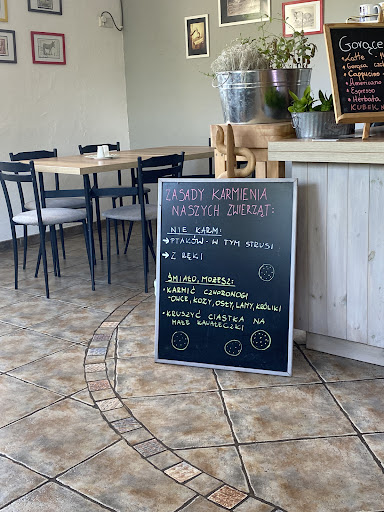 ZASADY KARMIENIA
NASZYCH ZWIERZĄT:
NIE KARM:
→ PTAKÓW - W TYM STRUSI
→ Z RĘKI
ŚMIAŁO, MOŻESZ:
• KARMIĆ CZWORONOGI
- OWCE, KOZY, OSŁY, LAMY, KRÓLIKI
• KRUSZYĆ CIASTKA NA
MAŁE KAWAŁECZKI
Gorące
Latte
Gorąca
Cappucino
Americano
Espresso
Herbata
KUBEK